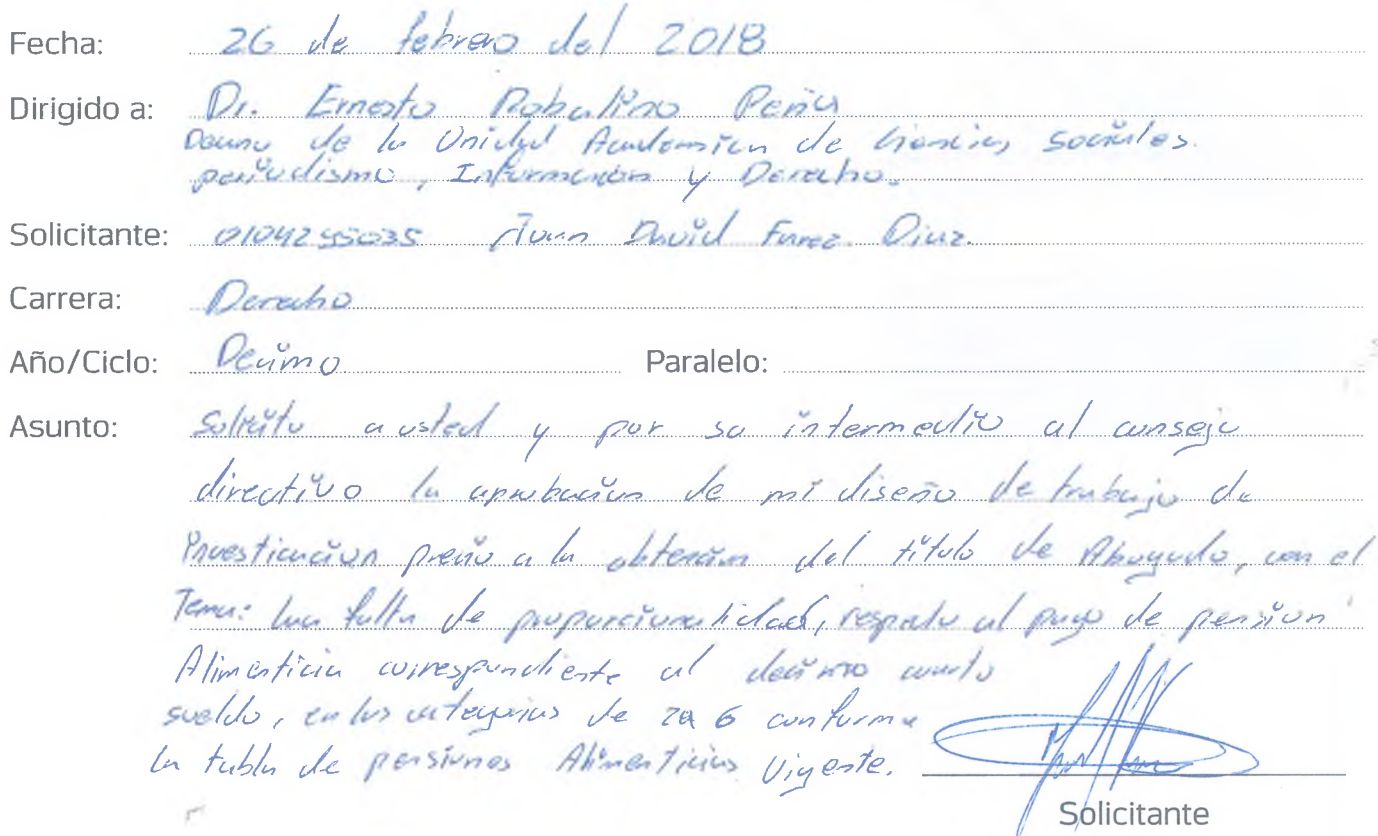 Fecha: 26 de febrero del 2018
Dirigido a: Dr. Ernesto Robalino Peña
Decano de la Unidad Academica de Ciencias Sociales.
periodismo, Información y Derecho.
Solicitante: Juan David Farez Diaz.
Carrera: Derecho
Año/Ciclo: Decimo Paralelo:
Asunto: Solicito a usted y por su intermedio al consejo
directivo la aprobacion de mi diseño de trabajo de
Investigacion previo a la obtencion del titulo de Abogado, con el
Tema: La falta de proporcionalidad, respecto al pago de pension
Alimenticia correspondiente al decimo cuarto
sueldo, en las categorias de 2 a 6 conforme
la tabla de pensiones Alimenticias Vigente.
Solicitante